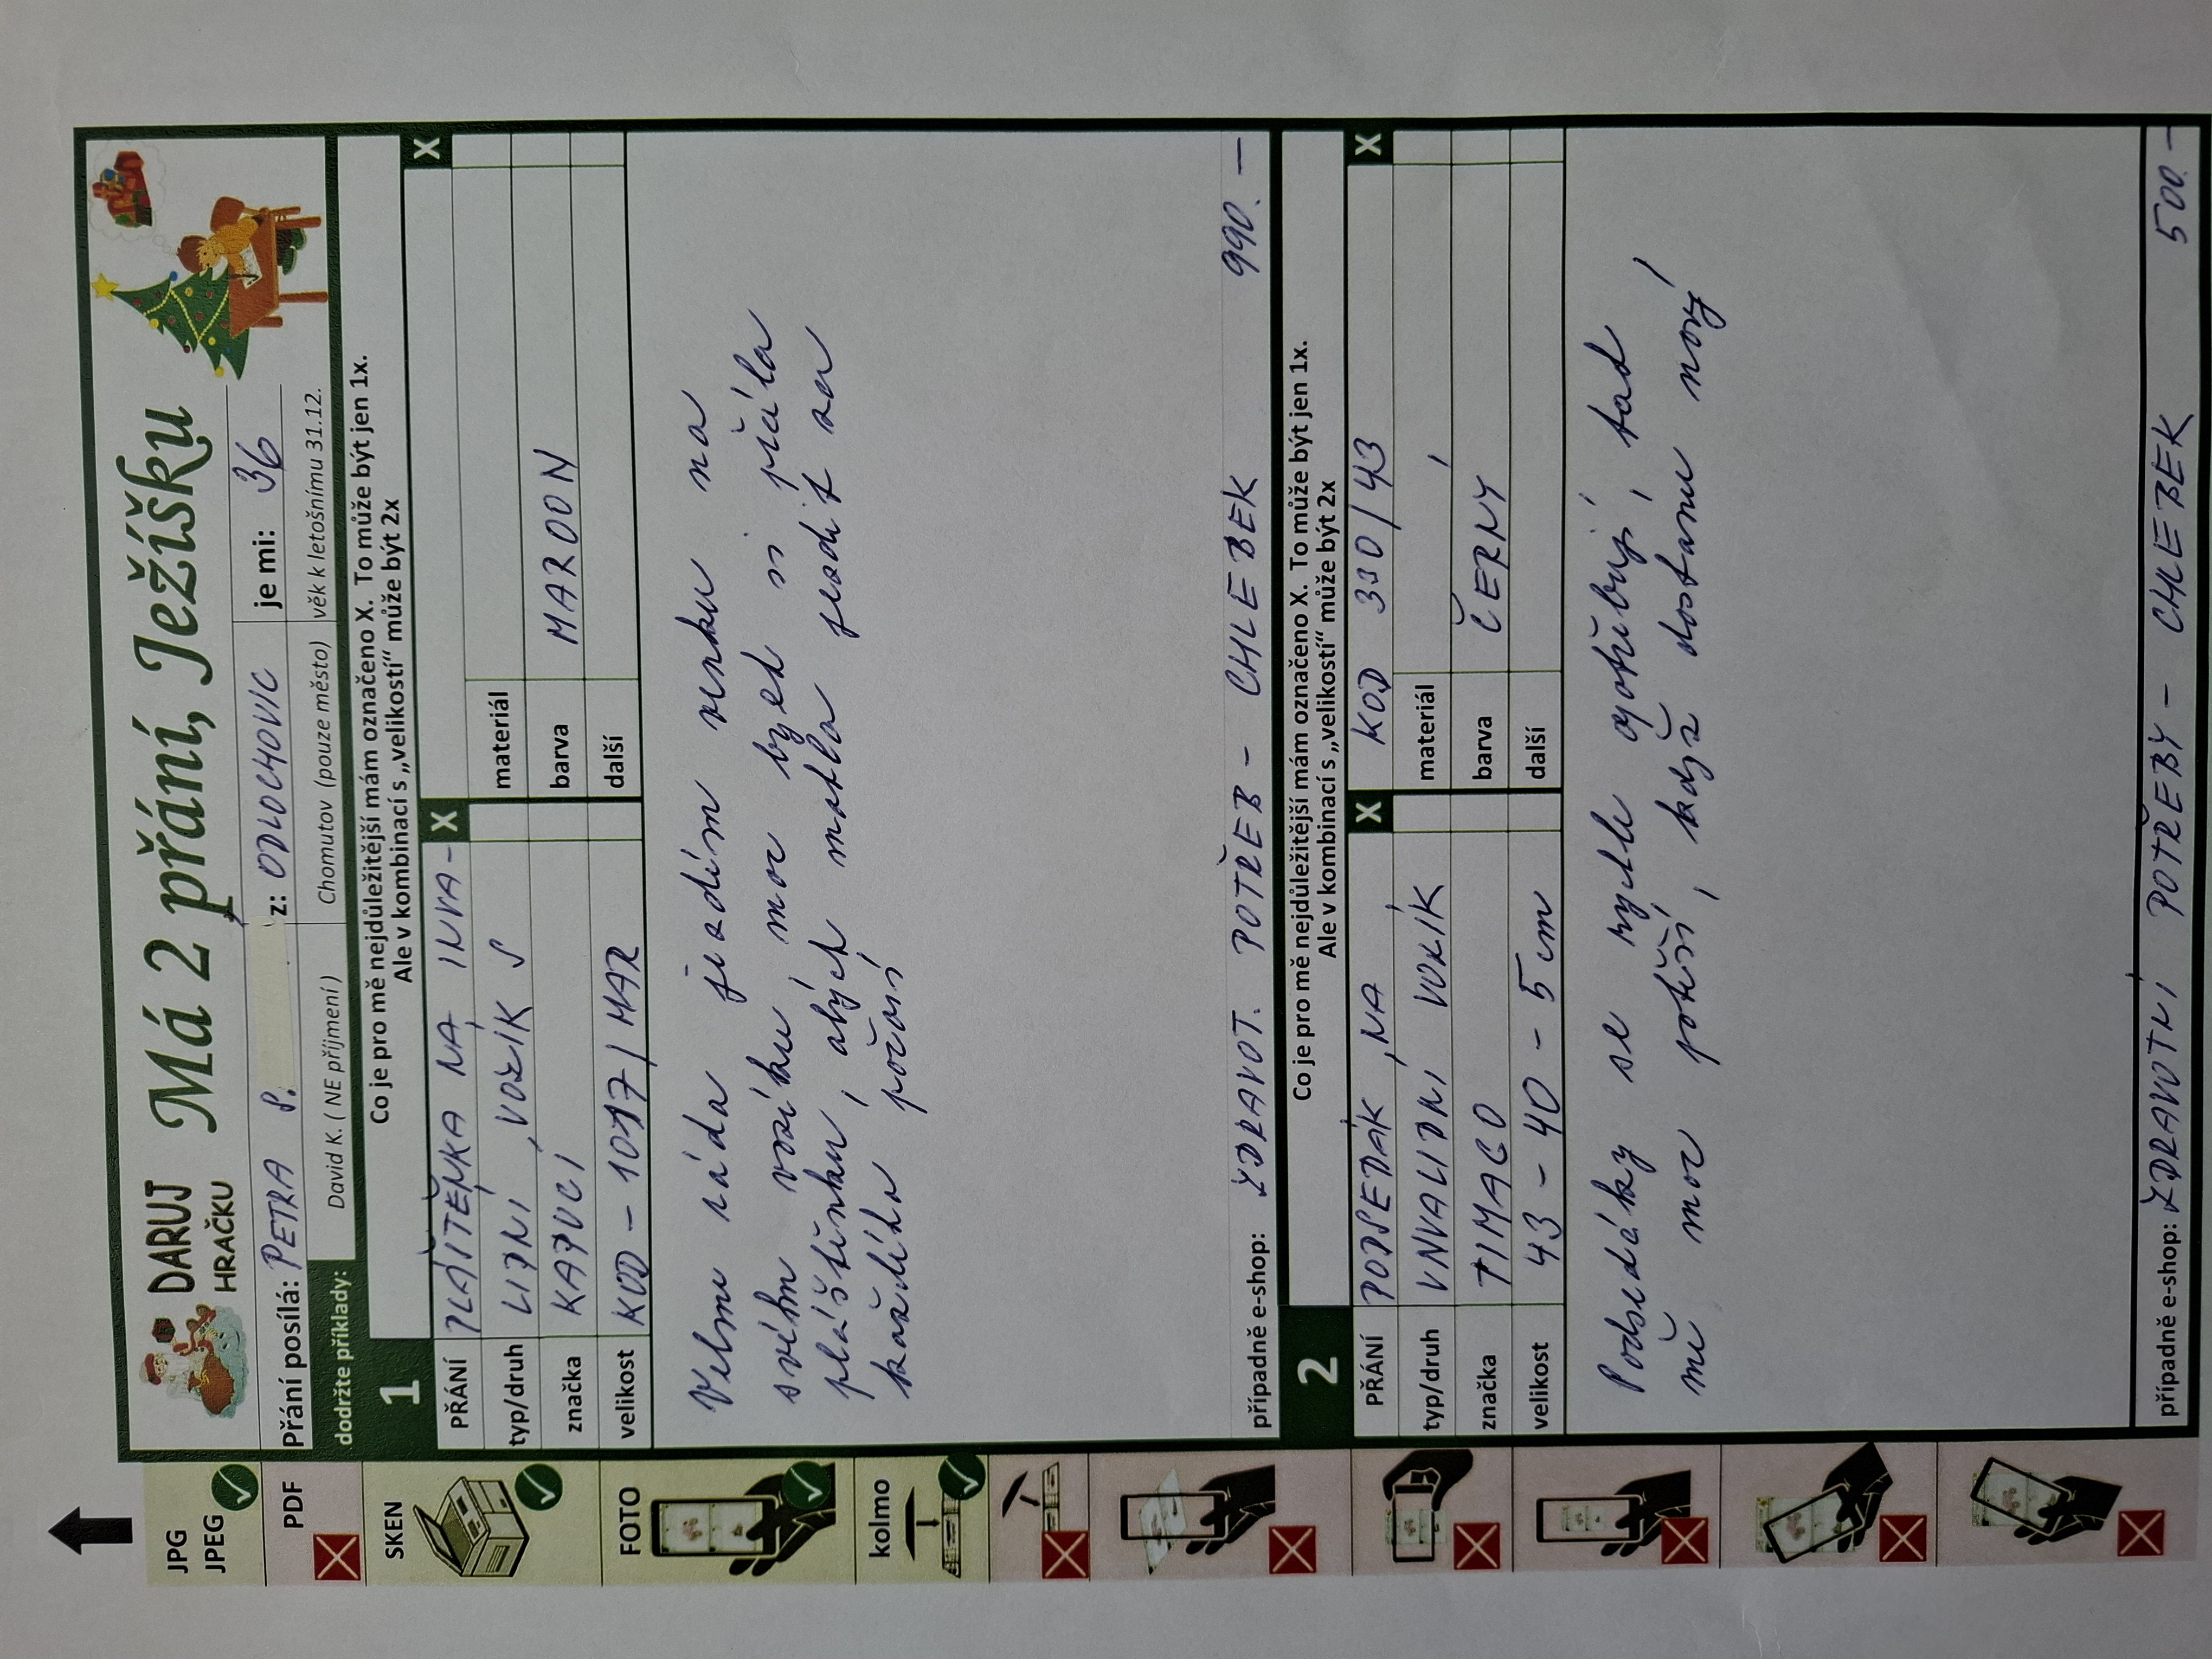 DARUJ
HRAČKU
Má 2 přání, Ježíšku
Přání posílá: PETRA P. z: ODLOCHOVIC je mi: 36
dodržte příklady: David K. ( NE příjmení ) Chomutov (pouze město) věk k letošnímu 31.12.
1 Co je pro mě nejdůležitější mám označeno X. To může být jen 1x.
Ale v kombinací s „velikostí“ může být 2x
PŘÁNÍ PLÁŠTĚNKA NA INVA- X X
typ/druh LIDNÍ VOZÍK S materiál
značka KAPUCÍ barva MAROON
velikost KOD - 1017/MAR další
Velmi ráda jezdím venku na
svém vozíku moc bych si přála
pláštěnku, abych mohla jezdit za
každého počasí
případně e-shop: ZDRAVOT. POTŘEB - CHLEBEK 990.-
2 Co je pro mě nejdůležitější mám označeno X. To může být jen 1x.
Ale v kombinací s „velikostí“ může být 2x
PŘÁNÍ PODSEDÁK NA X KOD 330/43 X
typ/druh INVALIDNÍ VOZÍK materiál
značka TIMAGO barva ČERNÝ
velikost 43 - 40 - 5 cm další
Podsedáky se rychle opotřebují, tak
mě moc potěší, když dostanu nový
případně e-shop: ZDRAVOTNÍ POTŘEBY - CHLEBEK 500.-
JPG
JPEG
PDF
SKEN
FOTO
kolmo